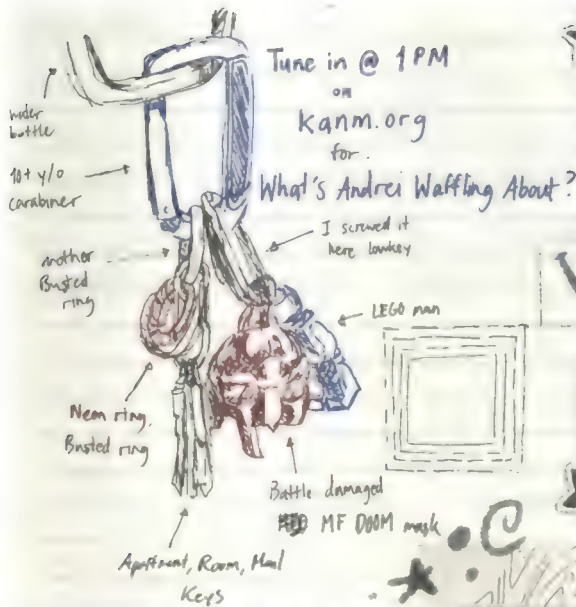 Tune in @ 1PM
on
kanm.org
for.
What's Andrei Waffling About?
water
bottle
10+ y/o
carabiner
another
Busted
ring
I screwed it
here lowkey
LEGO man
Neon ring,
Busted ring
Battle damaged
MF DOOM mask
Apartment, Room, Mail
Keys